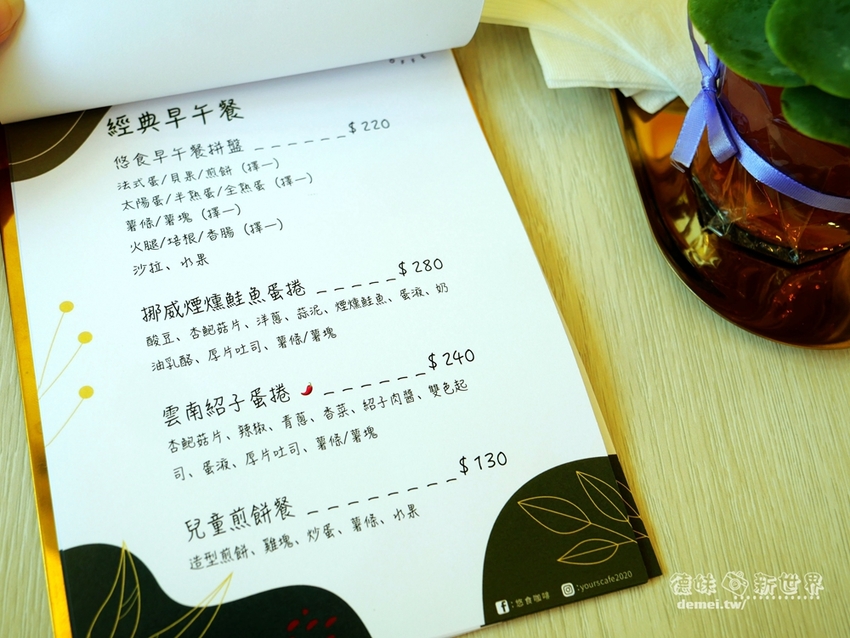 經典早午餐
悠食早午餐拼盤 _ _ _ _ _ _ $ 220
法式蛋/貝果/煎餅 (擇一)
太陽蛋/半熟蛋/全熟蛋 (擇一)
薯條/薯塊 (擇一)
火腿/培根/香腸 (擇一)
沙拉、水果
挪威煙燻鮭魚蛋捲 _ _ _ _ _ $ 280
酸豆、杏鮑菇片、洋蔥、蒜泥、煙燻鮭魚、蛋液、奶
油乳酪、厚片吐司、薯條/薯塊
雲南紹子蛋捲 _ _ _ _ _ _ $ 240
杏鮑菇片、辣椒、青蔥、香菜、紹子肉醬、雙色起
司、蛋液、厚片吐司、薯條/薯塊
兒童煎餅餐 _ _ _ _ _ _ _ _ $ 130
造型煎餅、雞塊、炒蛋、薯條、水果
f : 悠食咖啡 : yourscafe2020
德味新世界
demei.tw/